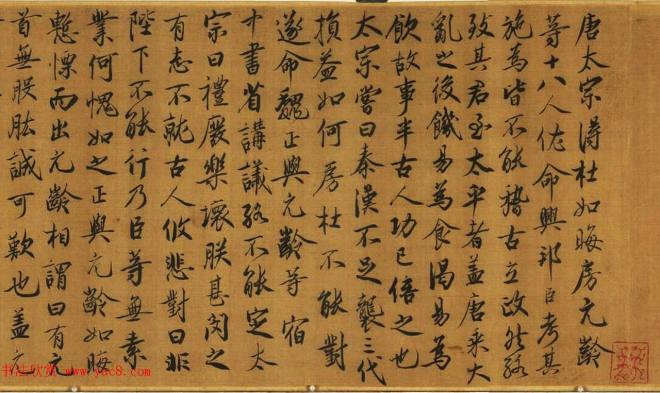 唐太宗得杜如晦房元齡
等十八人佐命興邦臣考其
施為皆不能稽古立政然終
致其君至太平者蓋唐乘大
亂之後饑易為食渴易為
飲故事半古人功已倍之也
太宗嘗曰秦漢不足襲三代
損益如何房杜不能對
遂命魏正與元齡等宿
中書省講議終不能定太
宗曰禮廢樂壞朕甚閔之
有志不就古人攸悲對曰非
陛下不能行乃臣等無素
業何愧如之正與元齡如晦
慙慄而出元齡相謂曰有元
首無股肱誠可歎也蓋之
书法欣赏 www.yac8.com